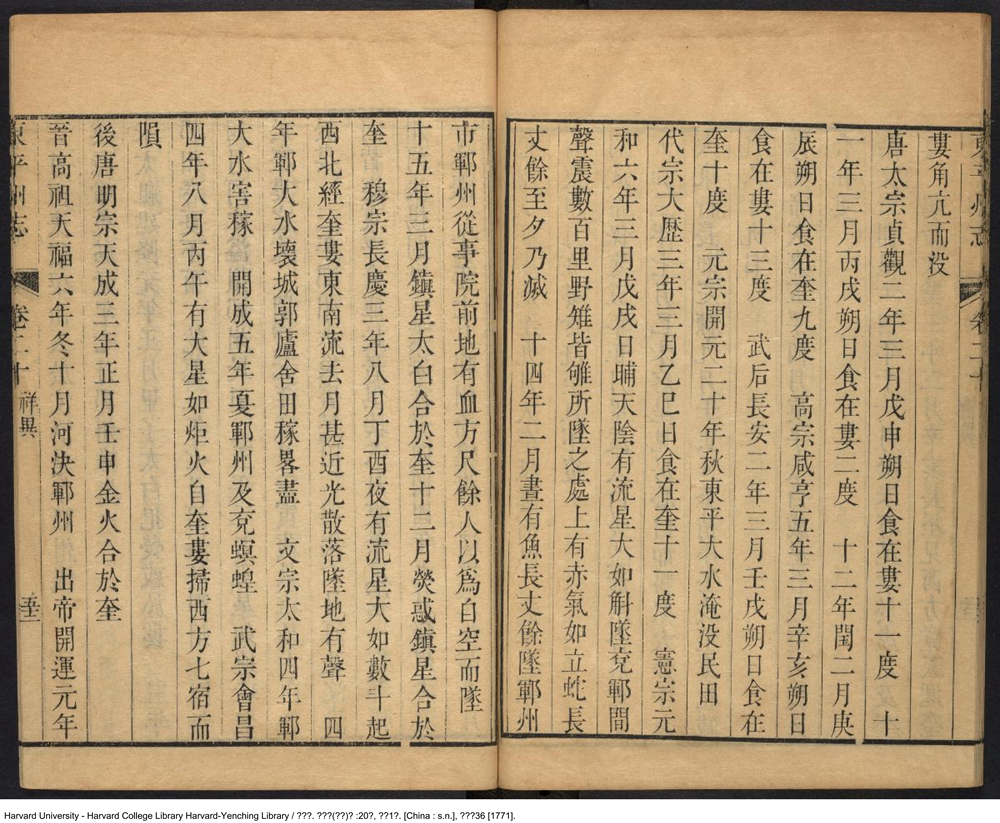 婁角亢而没
唐太宗貞觀二年三月戊申朔日食在婁十一度　十
一年三月丙戌朔日食在婁二度　十二年閏二月庚
辰朔日食在奎九度　高宗咸亨五年三月辛亥朔日
食在婁十三度　武后長安二年三月壬戌朔日食在
奎十度　元宗開元二十年秋東平大水淹没民田
代宗大歷三年三月乙巳日食在奎十一度　憲宗元
和六年三月戊戌日晡天陰有流星大如斛墜兗鄆間
聲震數百里野雉皆雊所墜之處上有赤氣如立蛇長
丈餘至夕乃滅　十四年二月晝有魚長丈餘墜鄆州
市鄆州從事院前地有血方尺餘人以爲自空而墜
十五年三月鎮星太白合於奎十二月熒惑鎮星合於
奎　穆宗長慶三年八月丁酉夜有流星大如數斗起
西北經奎婁東南流去月甚近光散落墜地有聲　四
年鄆大水壞城郭廬舍田稼畧盡　文宗太和四年鄆
大水害稼　開成五年夏鄆州及兗螟蝗　武宗會昌
四年八月丙午有大星如炬火自奎婁掃西方七宿而
隕
後唐明宗天成三年正月壬申金火合於奎
晉高祖天福六年冬十月河決鄆州　出帝開運元年
東平州志　卷二十　祥異
Harvard University - Harvard College Library Harvard-Yenching Library / ???. ???(??)? :20?, ??1?. [China : s.n.], ???36 [1771].